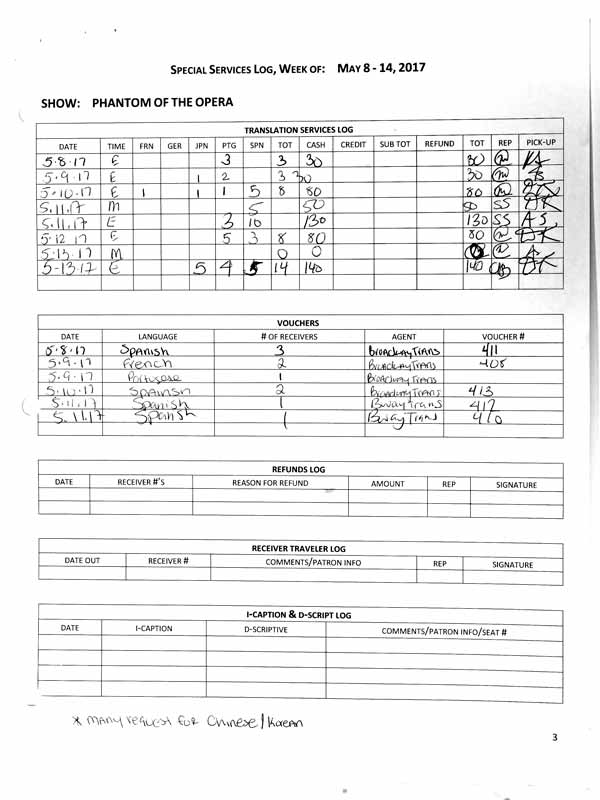 SPECIAL SERVICES LOG, WEEK OF: MAY 8 - 14, 2017
SHOW: PHANTOM OF THE OPERA
TRANSLATION SERVICES LOG
DATE TIME FRN GER JPN PTG SPN TOT CASH CREDIT SUB TOT REFUND TOT REP PICK-UP
5.8.17 E 3 3 30 30
5.9.17 E 1 2 3 30 30
5.10.17 E 1 1 1 5 8 80 80
5.11.17 M 5 50 SS
5.11.17 E 3 10 130 130 SS AS
5.12 17 E 5 3 8 80 80
5.13.17 M 0 0
5-13.17 E 5 4 5 14 140 140
VOUCHERS
DATE LANGUAGE # OF RECEIVERS AGENT VOUCHER #
5.8.17 Spanish 3 BroadwayTrans 411
5.9.17 French 2 BroadwayTrans 408
5.9.17 Portugese 1 BroadwayTrans
5.10.17 Spanish 2 BroadwayTrans 413
5.11.17 Spanish 1 BwayTrans 412
5.11.17 Spanish 1 BwayTrans 410
REFUNDS LOG
DATE RECEIVER #'S REASON FOR REFUND AMOUNT REP SIGNATURE
RECEIVER TRAVELER LOG
DATE OUT RECEIVER # COMMENTS/PATRON INFO REP SIGNATURE
I-CAPTION & D-SCRIPT LOG
DATE I-CAPTION D-SCRIPTIVE COMMENTS/PATRON INFO/SEAT #
* many request for Chinese/Korean
3